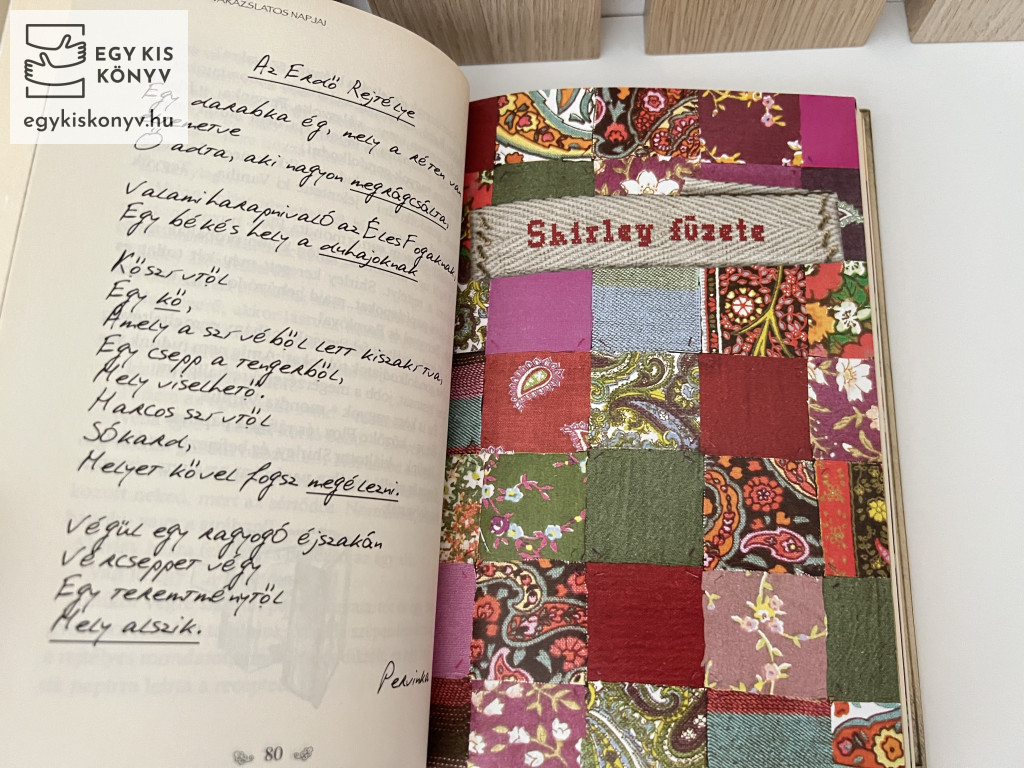 EGY KIS
KÖNYV
egykiskonyv.hu
NAPJAI
Az Erdő Rejtélye
Egy darabka ég, mely a réten van
Ő adta, aki nagyon megrágcsálta,
Valami harapnivaló az Éles Fogaknak
Egy békés hely a duhajoknak
Kőszívtől
Egy kő,
Amely a szívéből lett kiszakítva,
Egy csepp a tengerből,
Mely viselhető.
Marcos szívtől
Sókard,
Melyet kővel fogsz megélezni.
Végül egy ragyogó éjszakán
Vércseppet végy
Egy teremtménytől
Mely alszik.
80
Shirley füzete